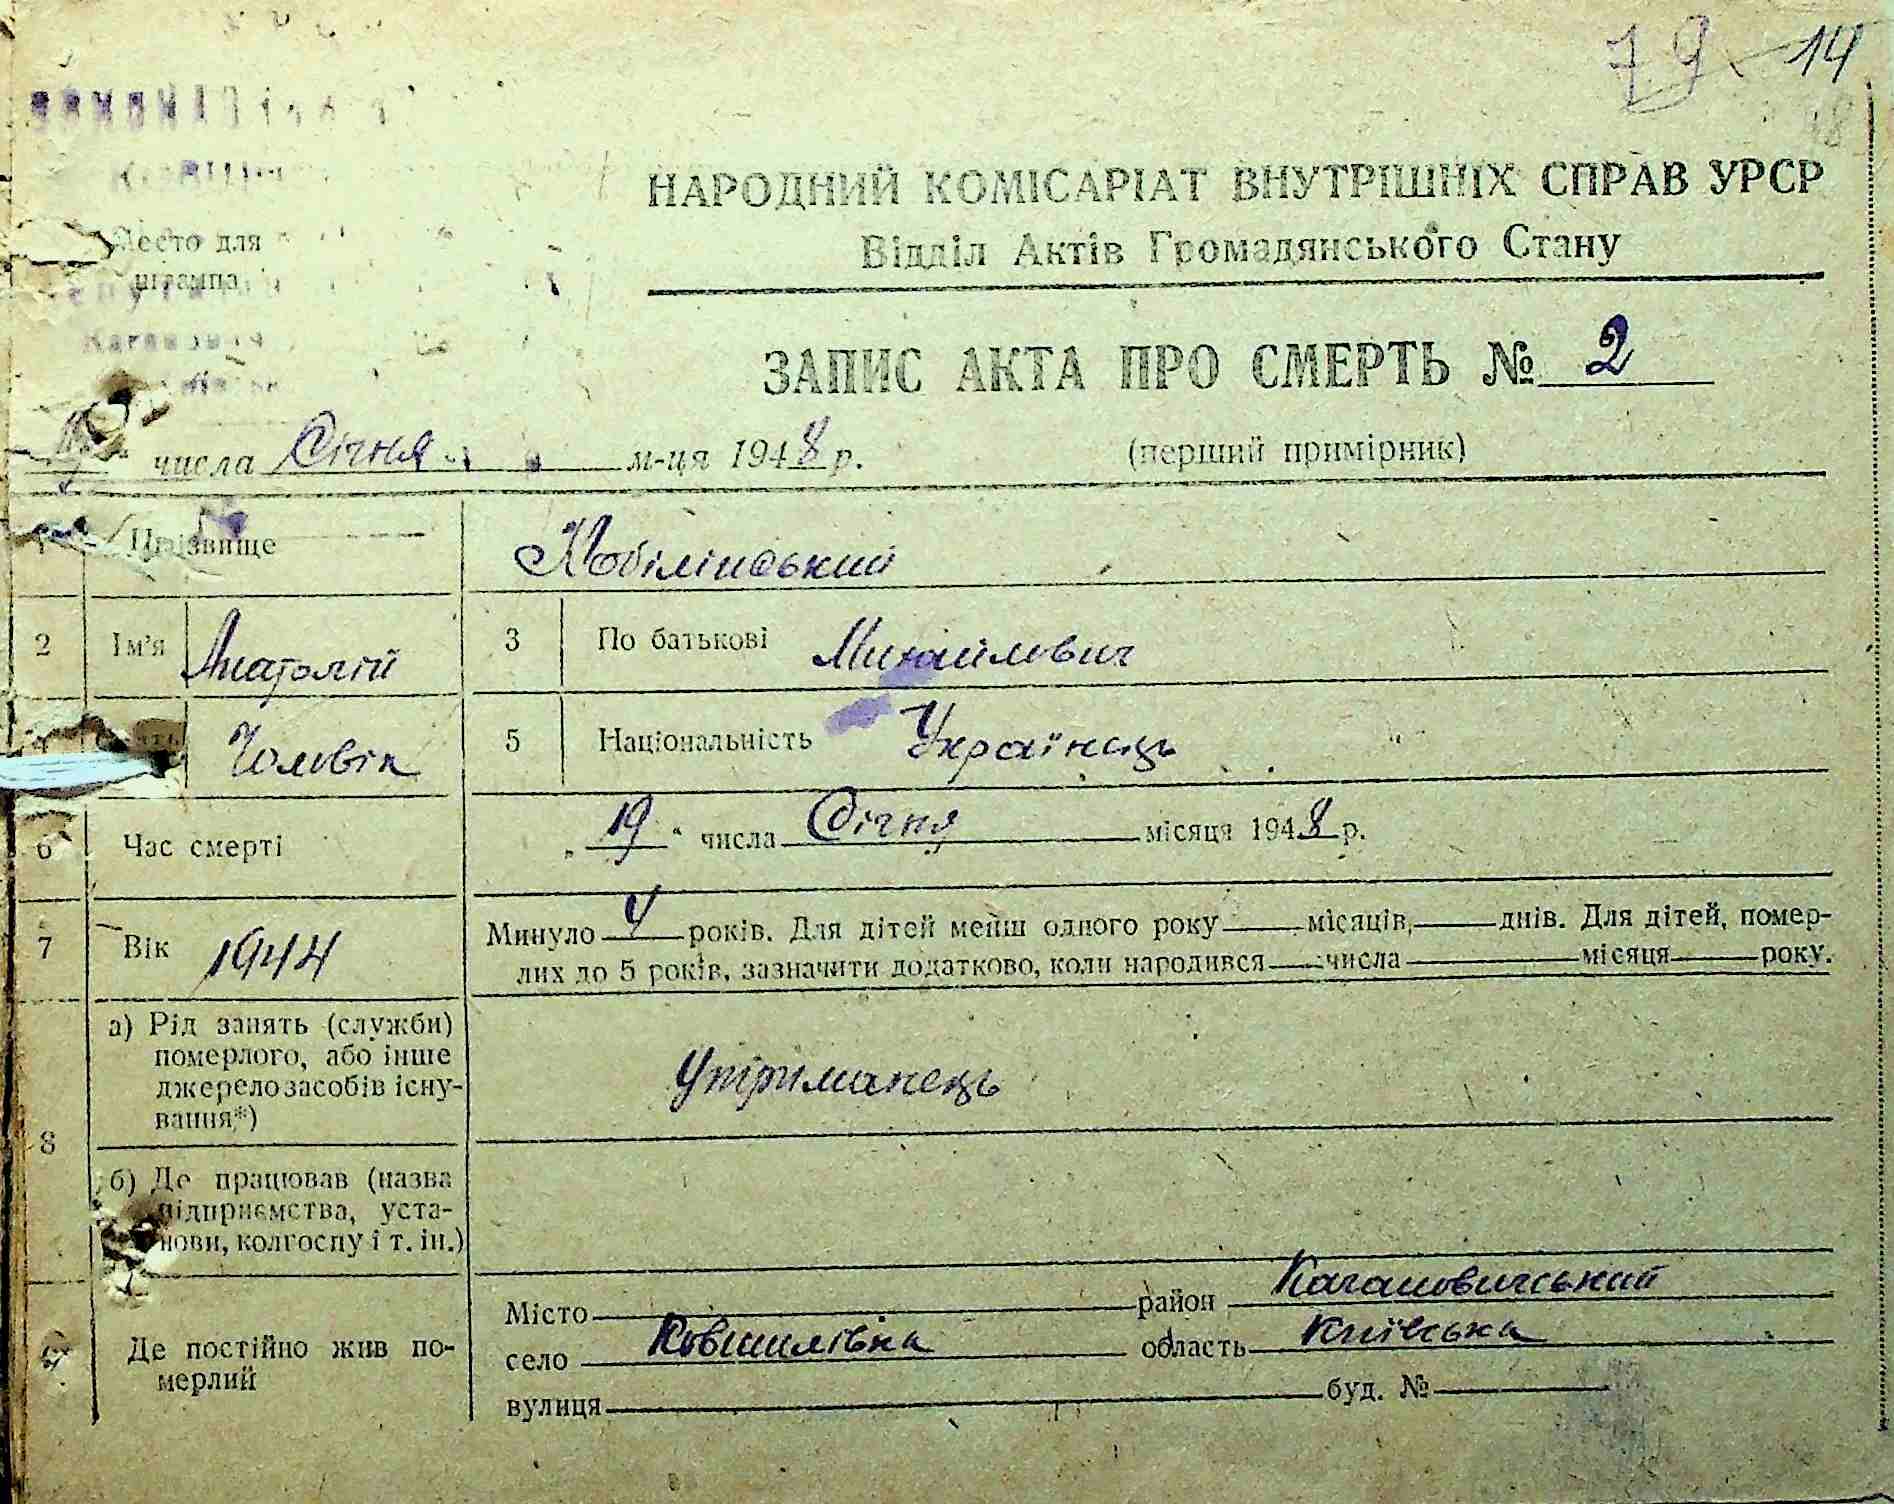 79 14
НАРОДНИЙ КОМІСАРІАТ ВНУТРІШНІХ СПРАВ УРСР
Відділ Актів Громадянського Стану
Место для
штампа
ЗАПИС АКТА ПРО СМЕРТЬ № 2
числа Січня м-ця 1948 р. (перший примірник)
1 Прізвище Кобілінський
2 Ім'я Анатолій 3 По батькові Михайлович
Чоловік 5 Національність Українець
6 Час смерті „19“ числа Січня місяця 1948 р.
7 Вік 1944 Минуло 4 років. Для дітей менш одного року місяців, днів. Для дітей, помер-
лих до 5 років, зазначити додатково, коли народився числа місяця року.
8 а) Рід занять (служби)
померлого, або інше
джерело засобів існу-
вання*)
Утріманець
б) Де працював (назва
підприємства, уста-
нови, колгоспу і т. ін.)
9 Де постійно жив по-
мерлий
Місто район Кагановичський
село Ковшилівка область Київська
вулиця буд. №